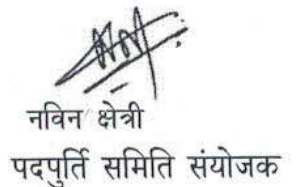 नविन क्षेत्री
पदपुर्ति समिति संयोजक